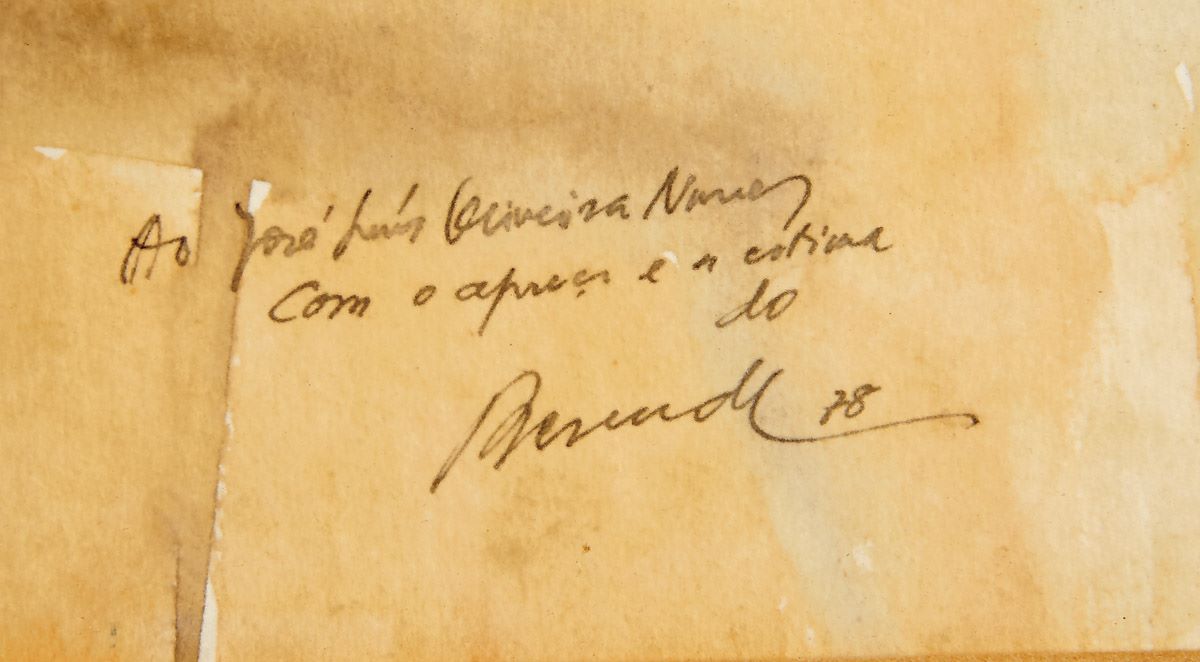 Ao José Luís Oliveira Nunes
Com o apreço e a estima
do
Resende 78